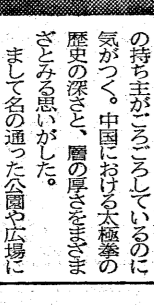 の持ち主がごろごろしているのに
気がつく。中国における太極拳の
歴史の深さと、層の厚さをまざま
ざとみる思いがした。
まして名の通った公園や広場に